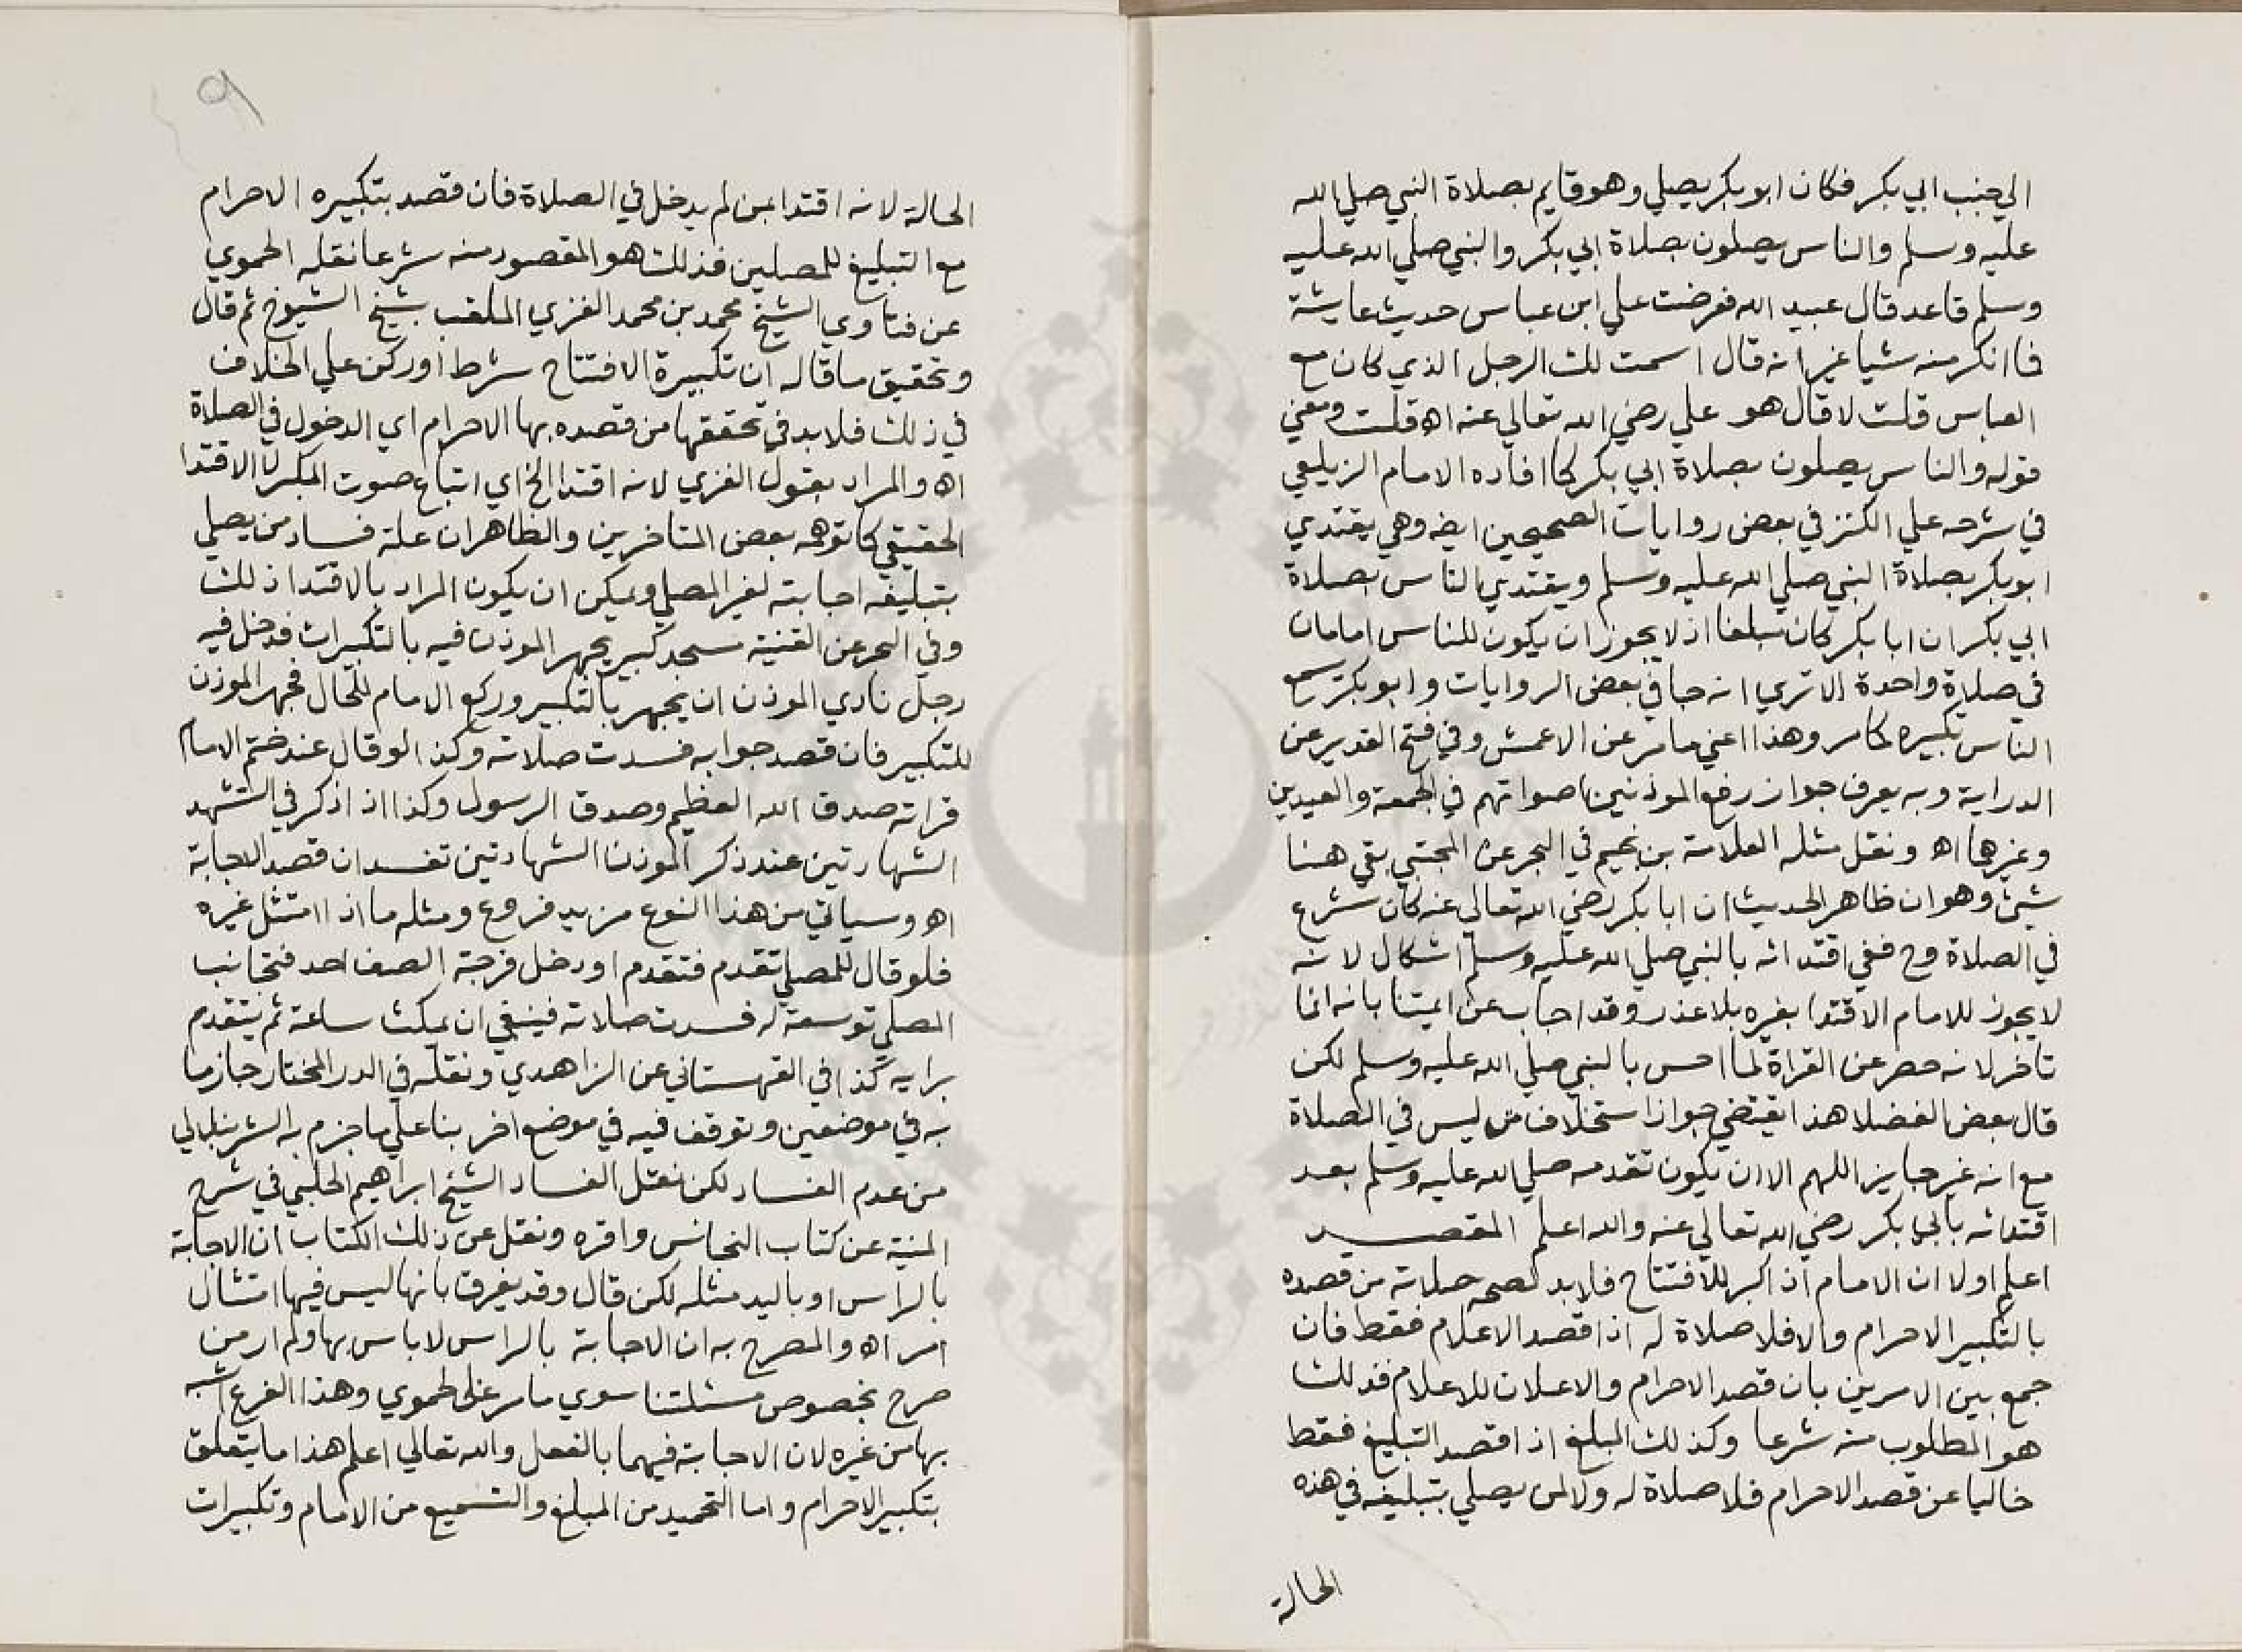 الي جنب ابي بكر فكان ابو بكر يصلي وهو قايم بصلاة النبي صلي الله
عليه وسلم والناس يصلون بصلاة ابي بكر والنبي صلي الله عليه
وسلم قاعد قال عبيد الله فعرضت علي ابن عباس حديث عايشة
فما انكر منه شيا غير انه قال اسمت لك الرجل الذي كان مع
العباس قلت لا قال هو علي رضي الله تعالي عنه اه قلت ومعني
قوله والناس يصلون بصلاة ابي بكر كما افاده الامام الزيلعي
في شرحه علي الكنز في بعض روايات الصحيحين ايضه وهي يقتدي
ابو بكر بصلاة النبي صلي الله عليه وسلم ويقتدي الناس بصلاة
ابي بكر ان ابا بكر كان مبلغا اذ لا يجوز ان يكون للناس امامان
في صلاة واحدة الا تري انه جا في بعض الروايات وابو بكر يسمع
الناس تكبيره كما مر وهذا اعني ما مر عن الاعمش وفي فتح القدير عن
الدراية وبه يعرف جواز رفع الموذنين اصواتهم في الجمعة والعيدين
وغيرهما اه ونقل مثله العلامة بن نجيم في البحر عن المجتبي بقي هنا
شيئ وهو ان ظاهر الحديث ان ابا بكر رضي الله تعالي عنه كان شرع
في الصلاة وح ففي اقتدائه بالنبي صلي الله عليه وسلم اشكال لانه
لا يجوز للامام الاقتدا بغيره بلا عذر وقد اجاب عن ايمتنا بانه انما
تاخر لانه حصر عن القراة لما احس بالنبي صلي الله عليه وسلم لكن
قال بعض الفضلا هذا يقتضي جواز استخلاف من ليس في الصلاة
مع انه غير جايز اللهم الا ان يكون تقدمه صلي الله عليه وسلم بعد
اقتدائه بابي بكر رضي الله تعالي عنه والله اعلم المقصد
اعلم اولا ان الامام اذا كبر للافتتاح فلا بد لصحه صلاته من قصده
بالتكبير الاحرام والا فلا صلاة له اذا قصد الاعلام فقط فان
جمع بين الامرين بان قصد الاحرام والاعلان للاعلام فذلك
هو المطلوب منه شرعا وكذلك المبلغ اذا قصد التبليغ فقط
خاليا عن قصد الاحرام فلا صلاة له ولا لمن يصلي بتبليغه في هذه
الحالة
٩
الحالة لانه اقتدا بمن لم يدخل في الصلاة فان قصد بتكبيره الاحرام
مع التبليغ للمصلين فذلك هو المقصود منه شرعا نقله الحموي
عن فتاوي الشيخ محمد بن محمد الغزي الملقب بشيخ الشيوخ ثم قال
وتحقيق ما قاله ان تكبيرة الافتتاح شرط او ركن علي الخلاف
في ذلك فلا بد في تحققها من قصده بها الاحرام اي الدخول في الصلاة
اه والمراد بقول الغزي لانه اقتدا الخ اي اتباع صوت المكبر لا الاقتدا
الحقيقي كما توهمه بعض المتاخرين والظاهر ان علة فساد من يصلي
بتبليغه اجابته لغير المصلي ويمكن ان يكون المراد بالاقتدا ذلك
وفي البحر عن القنية مسجد كبير يجهر الموذن فيه بالتكبيرات فدخل فيه
رجل نادي الموذن ان يجهر بالتكبير وركع الامام للحال فجهر الموذن
للتكبير فان قصد جوابه فسدت صلاته وكذا لو قال عند ختم الامام
قراته صدق الله العظيم وصدق الرسول وكذا اذا ذكر في التشهد
الشهادتين عند ذكر الموذن الشهادتين تفسد ان قصد الاجابة
اه وسياتي من هذا النوع مزيد فروع ومثله ما اذا امتثل غيره
فلو قال للمصلي تقدم فتقدم او دخل فرجة الصف احد فتجانب
المصلي توسعة له فسدت صلاته فينبغي ان يمكث ساعة ثم يتقدم
برايه كذا في القهستاني عن الزاهدي ونقله في الدر المختار جازما
به في موضعين وتوقف فيه في موضع اخر بنا علي ما جزم به الشرنبلالي
من عدم الفساد لكن نقل الفساد الشيخ ابراهيم الحلبي في شرح
المنية عن كتاب التجانس واقره ونقل عن ذلك الكتاب ان الاجابة
بالراس او باليد مثله لكن قال وقد يفرق بانها ليس فيها امتثال
امر اه والمصرح به ان الاجابة بالراس لا باس بها ولم ار من
صرح بخصوص مسئلتنا سوي ما مر عن الحموي وهذا الفرع اشبه
بها من غيره لان الاجابة فيهما بالفعل والله تعالي اعلم هذا ما يتعلق
بتكبير الاحرام واما التحميد من المبلغ والتسميع من الامام وتكبيرات